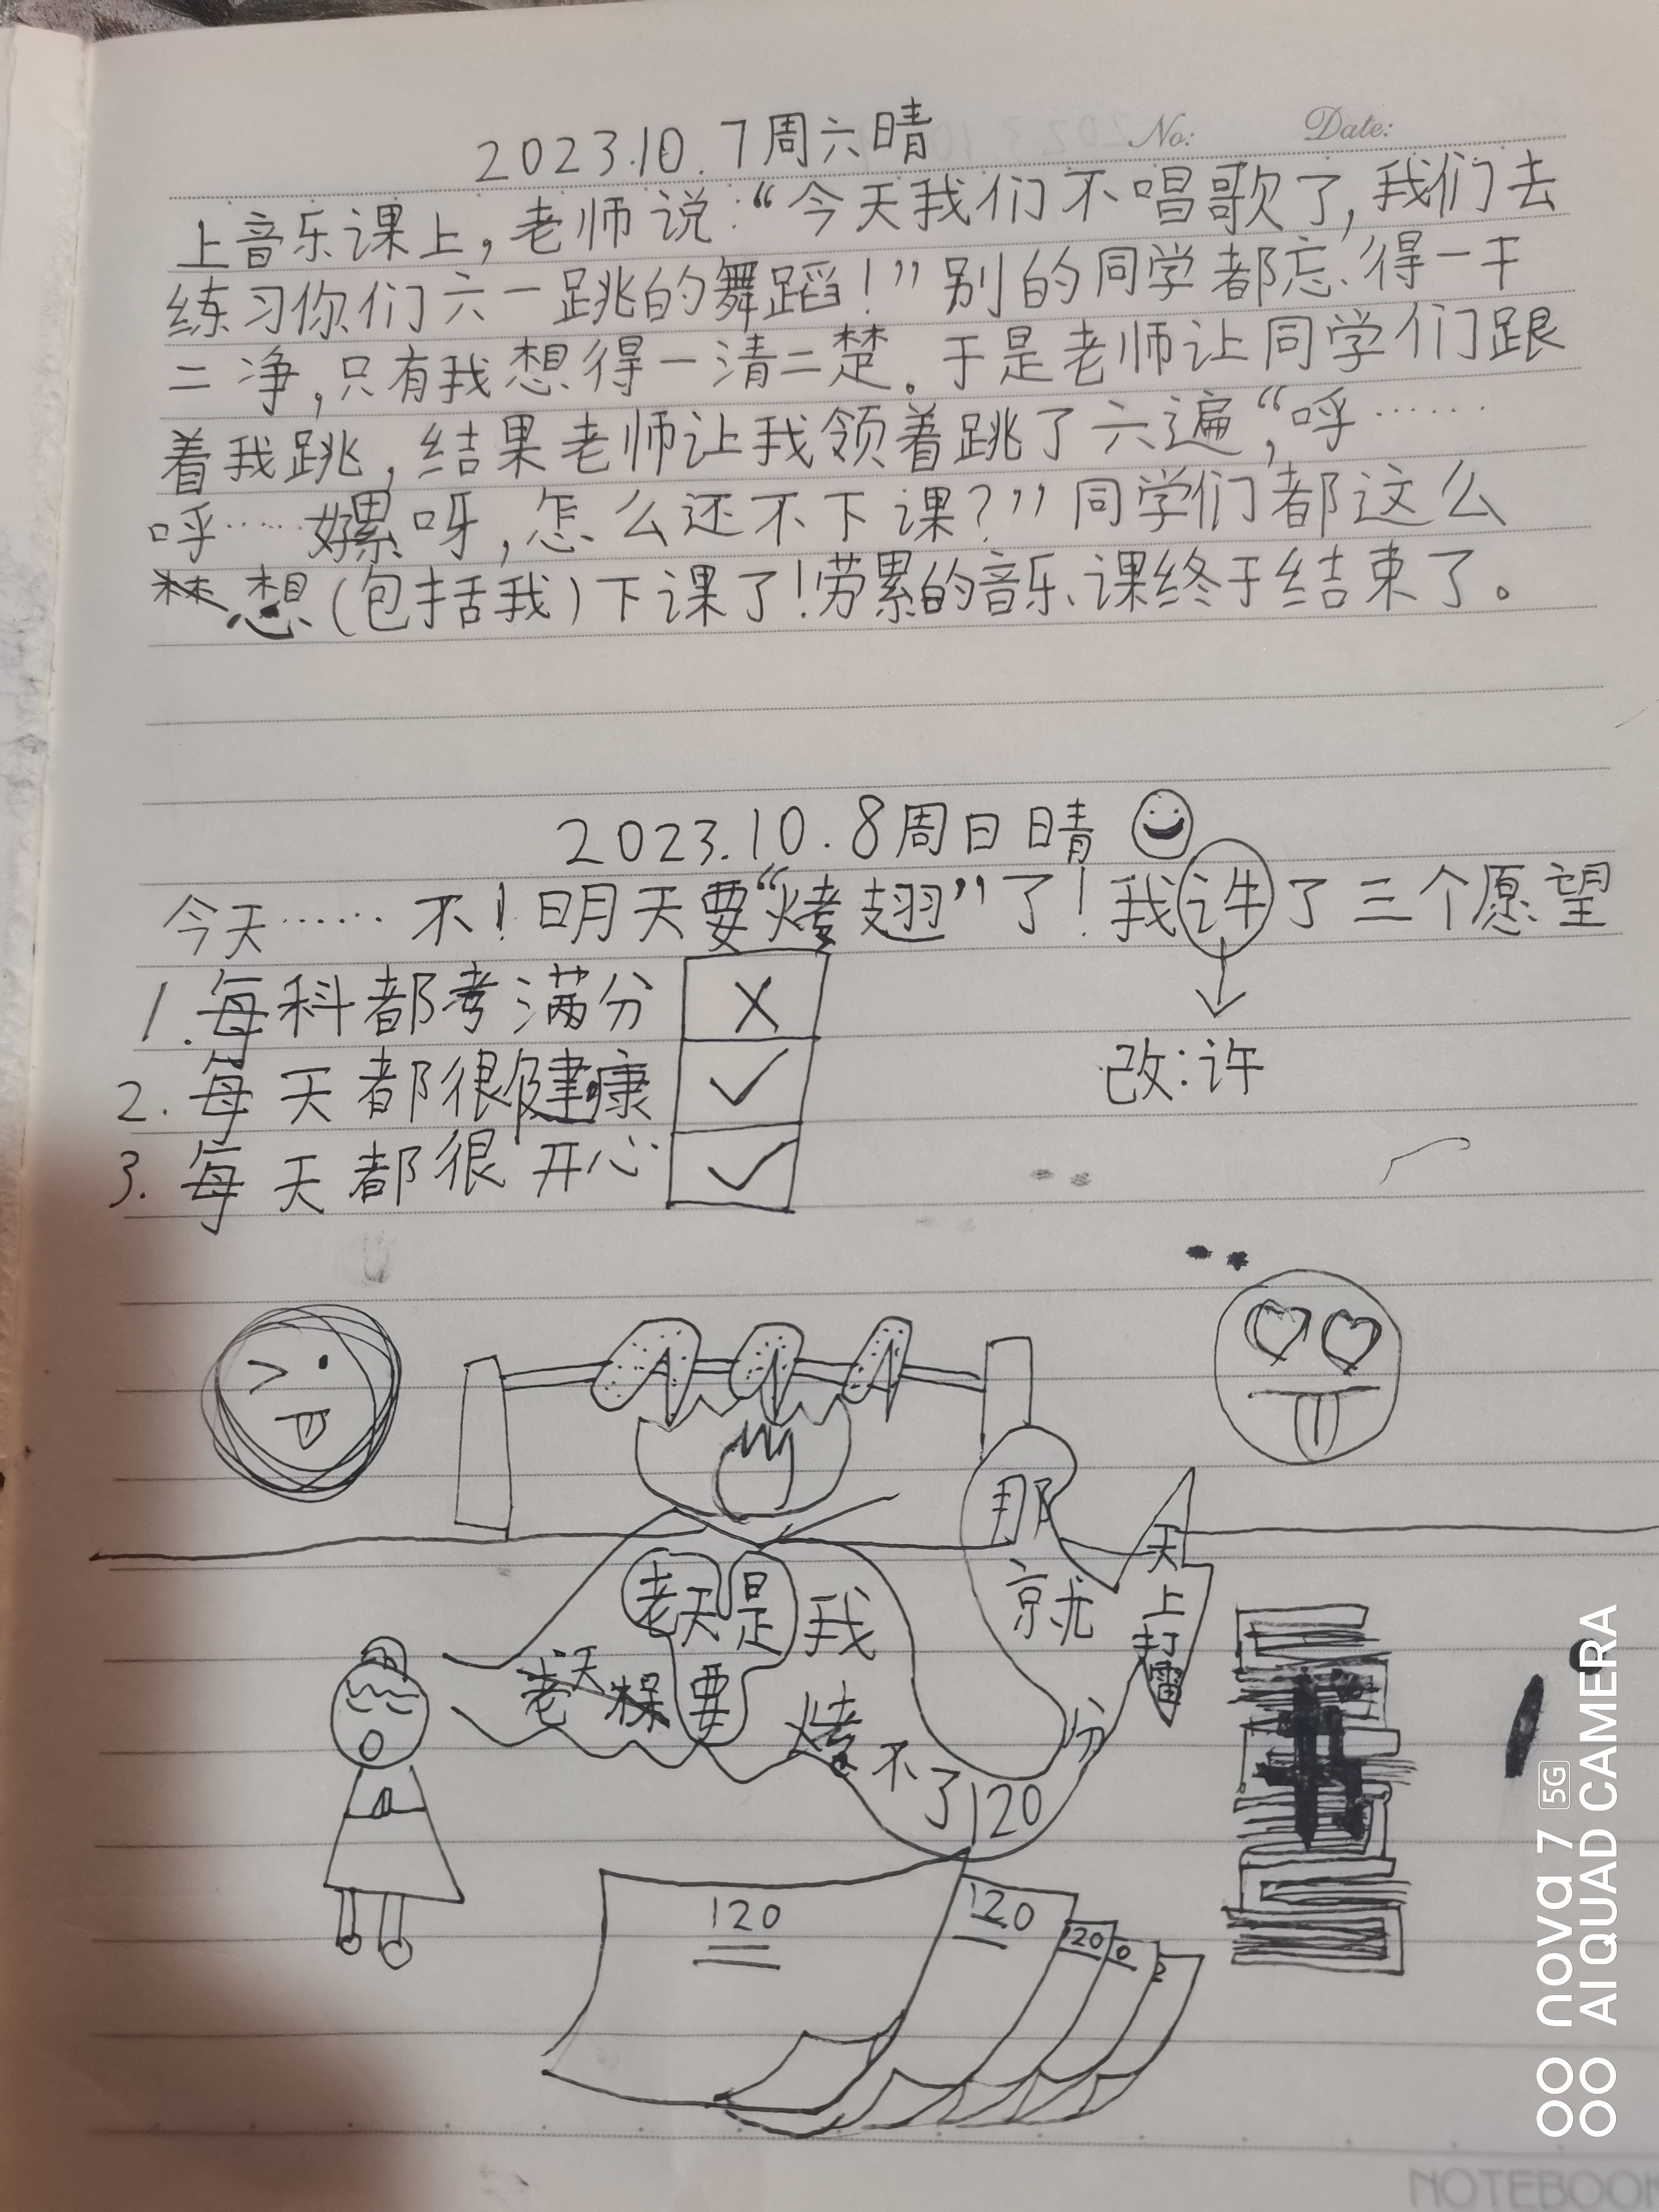 No: Date:
2023.10.7周六晴
上音乐课上，老师说：“今天我们不唱歌了，我们去
练习你们六一跳的舞蹈！”别的同学都忘得一干
二净，只有我想得一清二楚。于是老师让同学们跟
着我跳，结果老师让我领着跳了六遍，“呼……
呼……好累呀，怎么还不下课？”同学们都这么
想（包括我）下课了！劳累的音乐课终于结束了。
2023.10.8周日晴
今天……不！明天要“烤翅”了！我许了三个愿望
1.每科都考满分 X
2.每天都很健康 ✓
3.每天都很开心 ✓
改：许
老天是我
要
烤不了120分
那就
天上打雷
120
120
20
0
2
nova 7 5G
AI QUAD CAMERA
NOTEBOOK